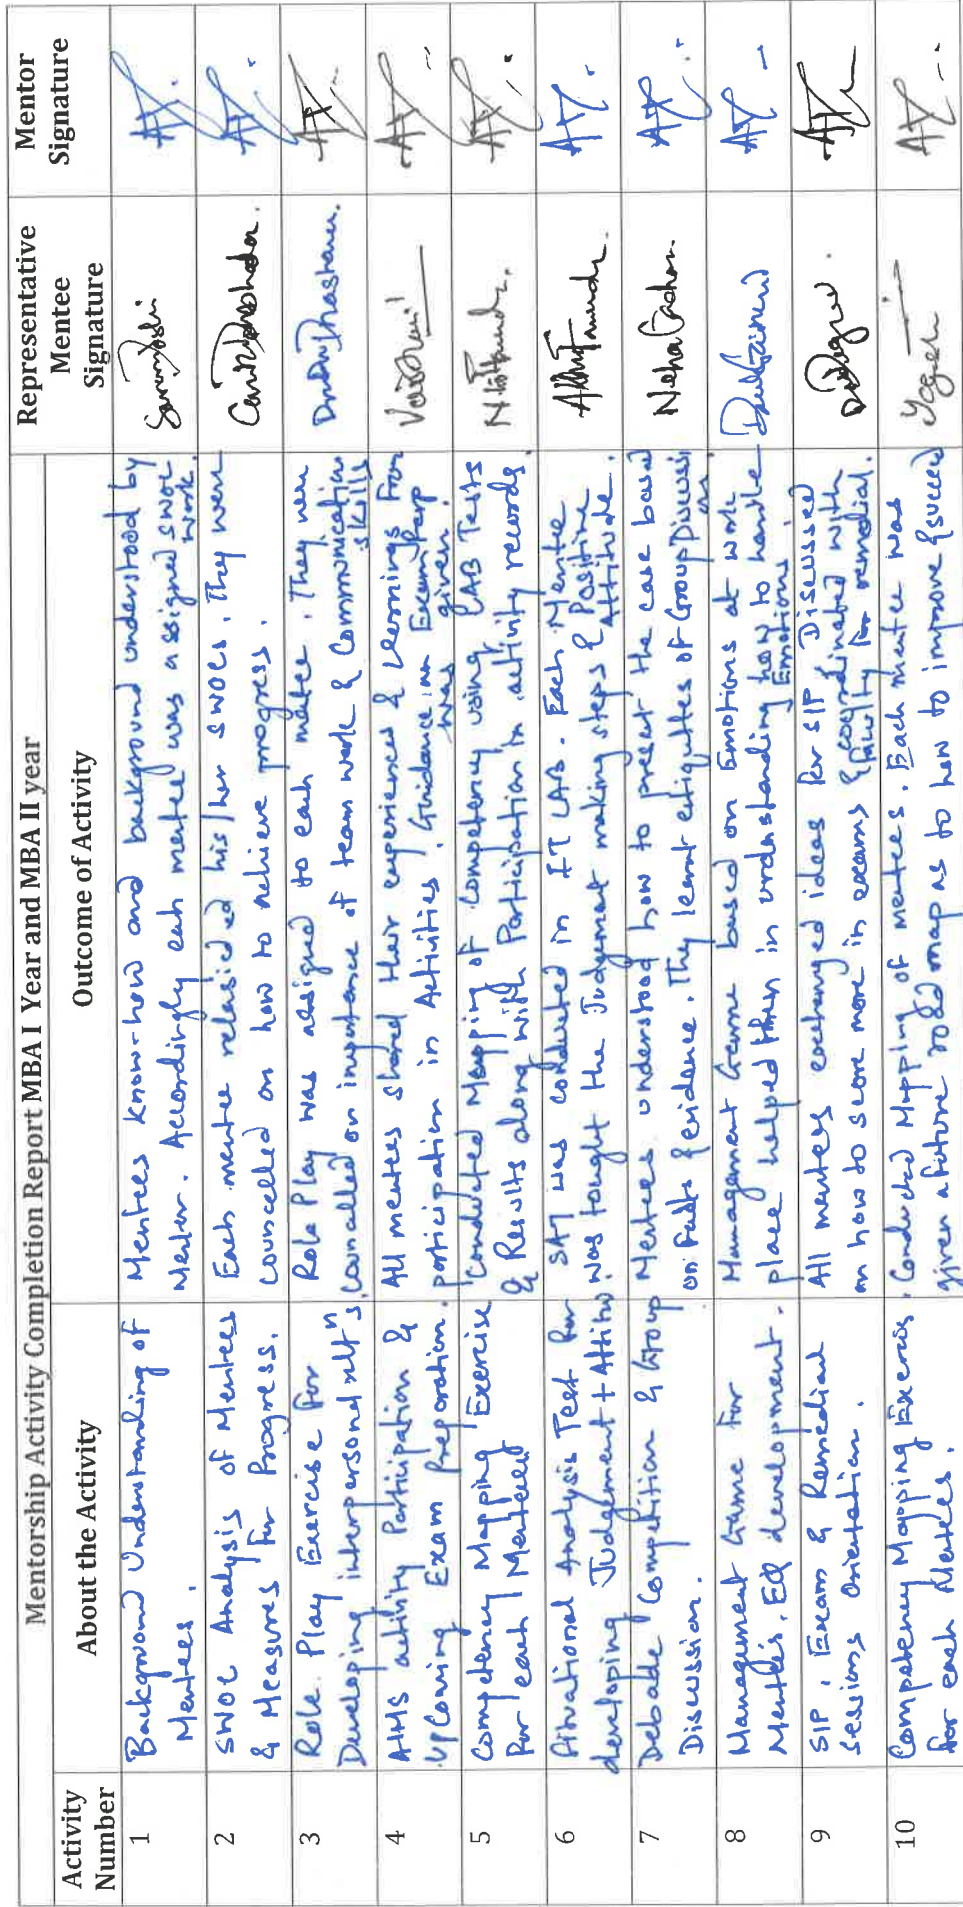 Mentorship Activity Completion Report MBA I Year and MBA II year
Activity Number
About the Activity
Outcome of Activity
Representative Mentee Signature
Mentor Signature
1
Background Understanding of
Mentees.
Mentees know-how and background understood by
Mentor. Accordingly each mentee was assigned SWOC
work.
2
SWOC Analysis of Mentees
& Measures for Progress.
Each mentee his/her SWOCs. They were
councelled on how to achieve progress.
3
Role Play Exercise for
Developing interpersonal reltns
Role Play was assigned to each matee. They were
councelled on importance of team work & Communication
skills
4
AIMS activity Participation &
Upcoming Exam preparation.
All mentees shared their experiences & learnings from
participation in Activities. Guidance Exam Prep
was given.
Vaishnavi
5
Competency Mapping Exercise
for each Mentees
Conducted Mapping of competency using LAB Tests
& Results along with Participation in activity records.
6
Situational Analysis Test for
developing Judgement + Attitu
SAT was conducted in IT LAB. Each Mentee
was taught the Judgement making steps & Positive
Attitude.
7
Debate Competition & Group
Discussion.
Mentees understood how to present the case based
on facts & evidence. They learnt etiquites of Group Discussi
on
Neha
8
Management Game for
Mentees. EQ development.
Management Game based on Emotions at work
place helped them in understanding how to handle
Emotions
9
SIP, Exam & Remedial
sessions Orientation.
All mentees exchanged ideas for SIP Discussed
on how to score more in exams & coordinated with
faculty for remedial.
10
Competency Mapping Exercis
for each Mentees.
Conducted Mapping of mentees. Each mentee was
given a future road map as to how to improve & succeed
Yogesh